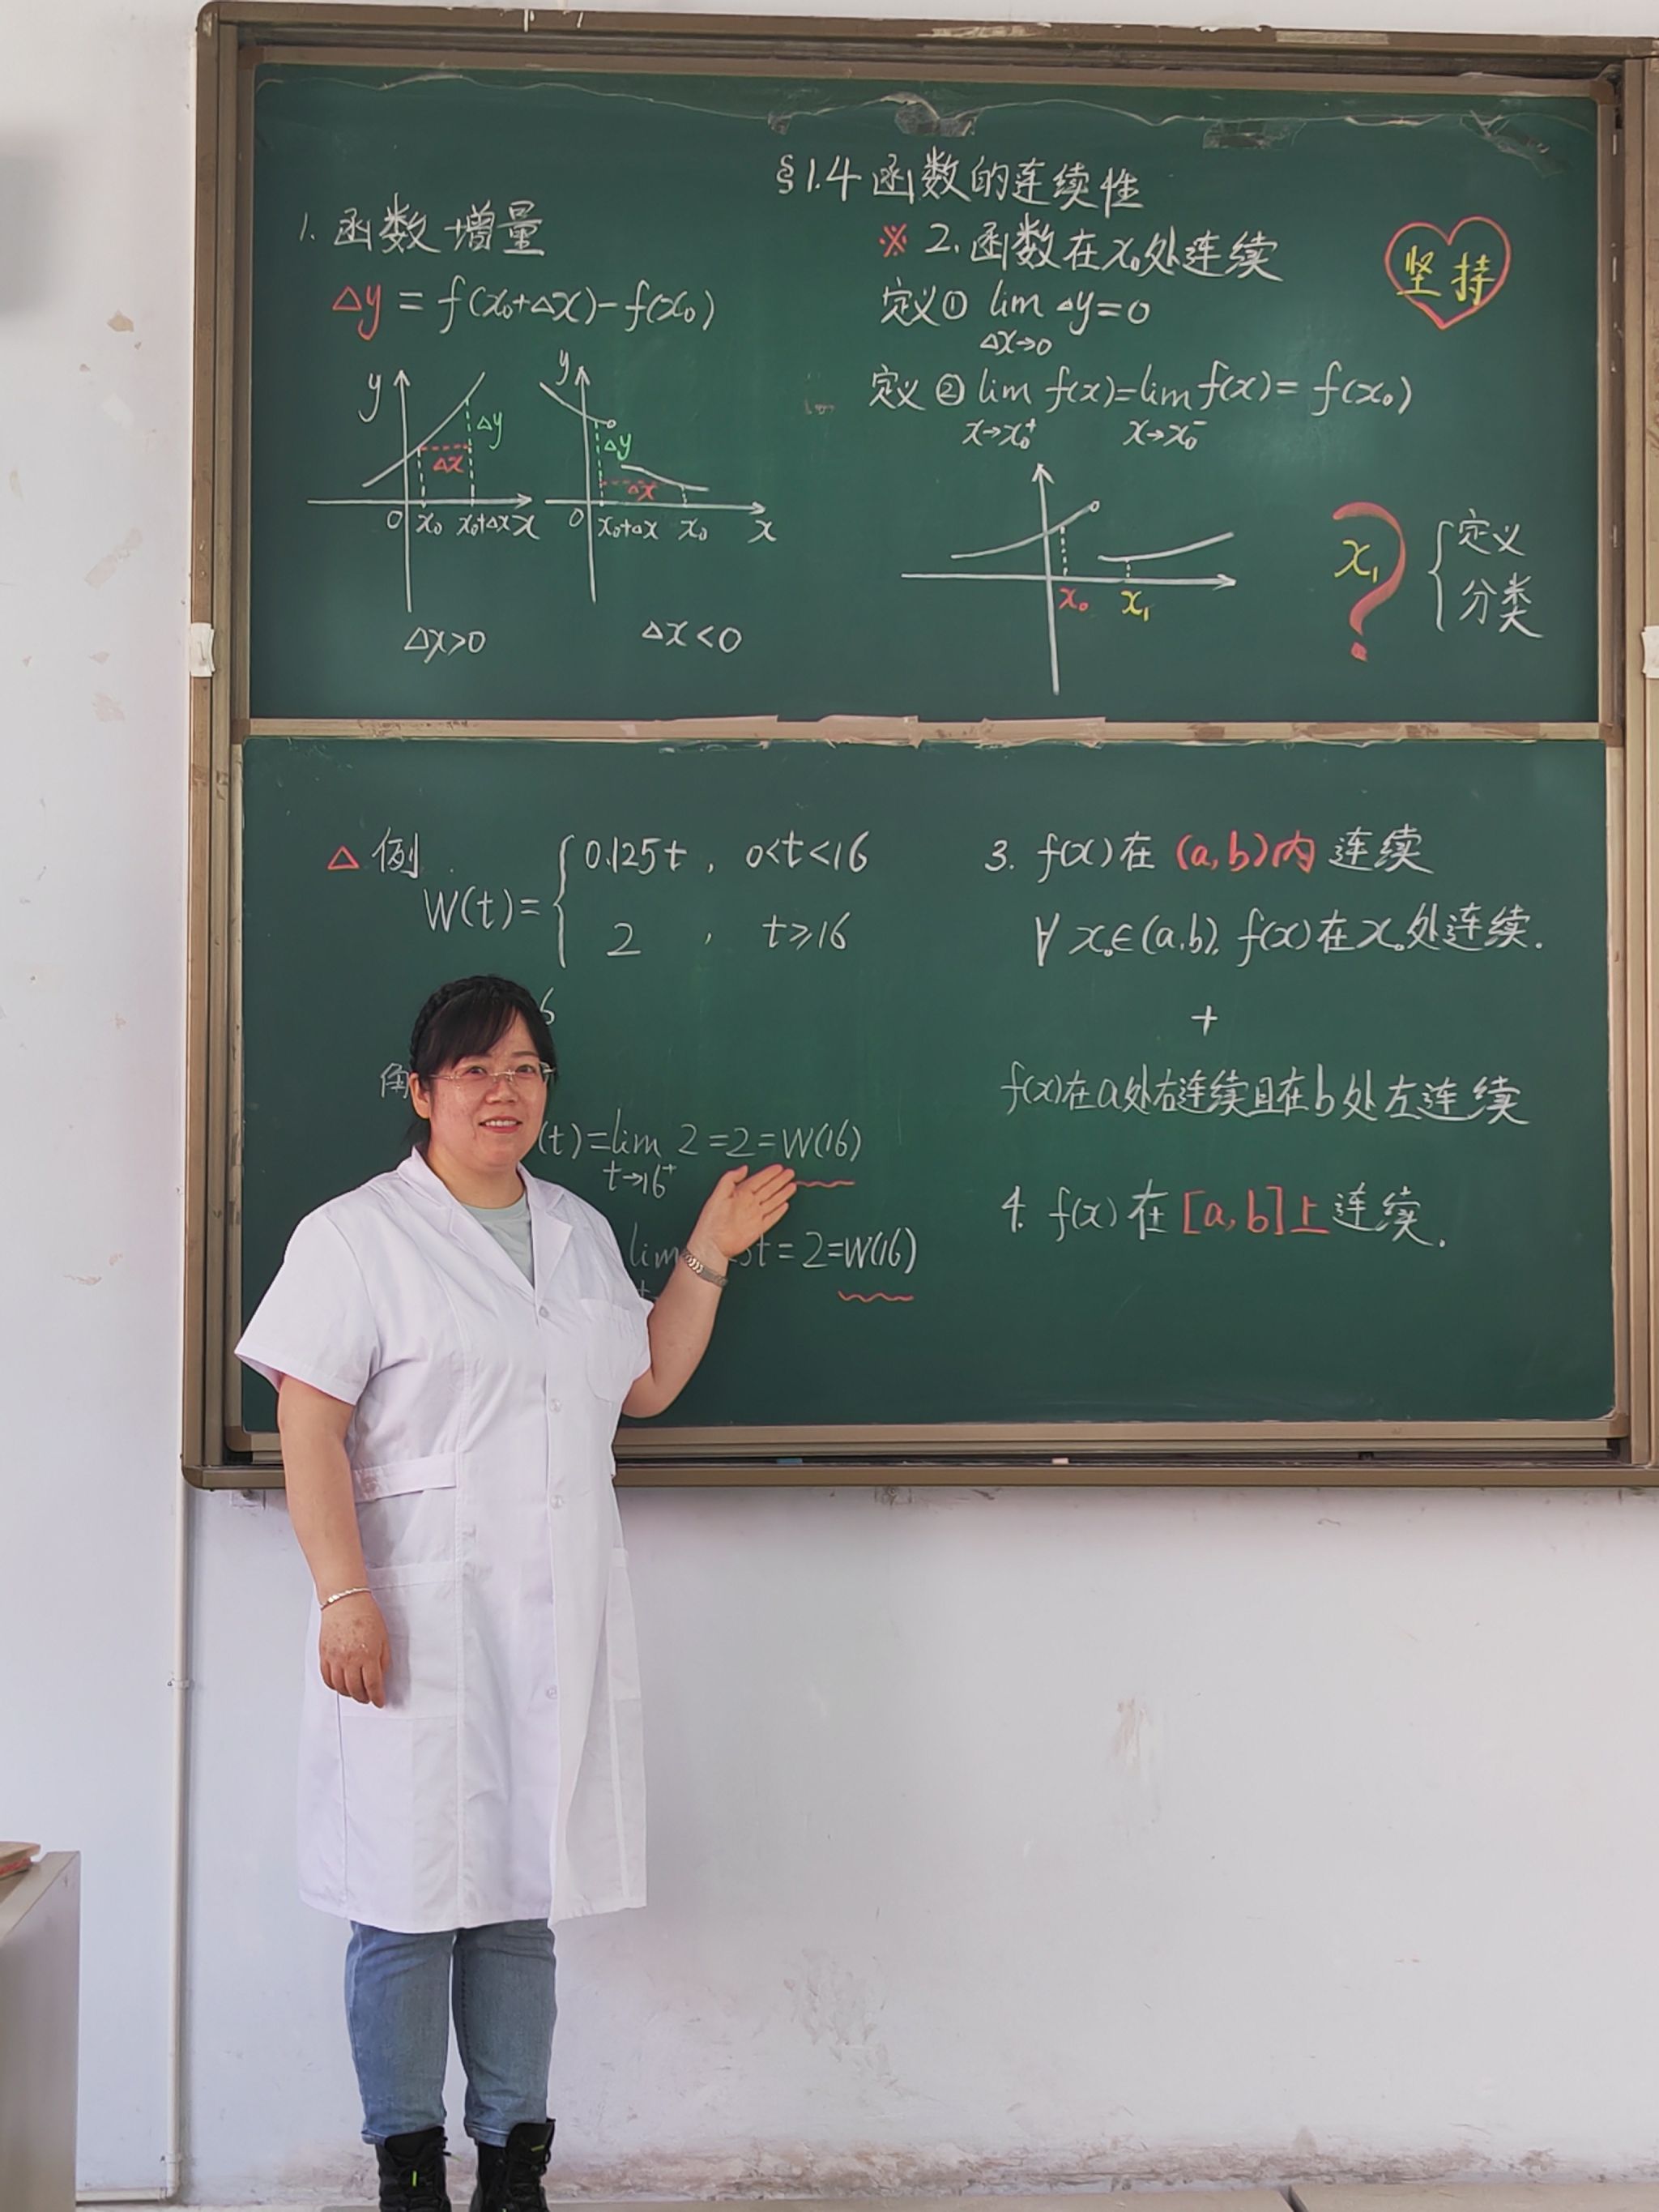 §1.4 函数的连续性
1. 函数增量
Δy = f(x₀+Δx)-f(x₀)
y
Δy
Δx
0 x₀ x₀+Δx x
Δx>0
y
Δy
Δx
0 x₀+Δx x₀ x
Δx<0
※ 2. 函数在x₀处连续
定义① lim Δy=0
Δx→0
定义② lim f(x)=lim f(x)= f(x₀)
x→x₀⁺ x→x₀⁻
x₀ x₁
坚持
x₁ ?
定义
分类
△ 例
W(t)= { 0.125t , 0<t<16
2 , t≥16
6
(t)=lim 2=2=W(16)
t→16⁺
lim 5t=2=W(16)
3. f(x)在(a,b)内连续
∀ x₀∈(a,b), f(x)在x₀处连续.
+
f(x)在a处右连续且在b处左连续
4. f(x)在[a,b]上连续.